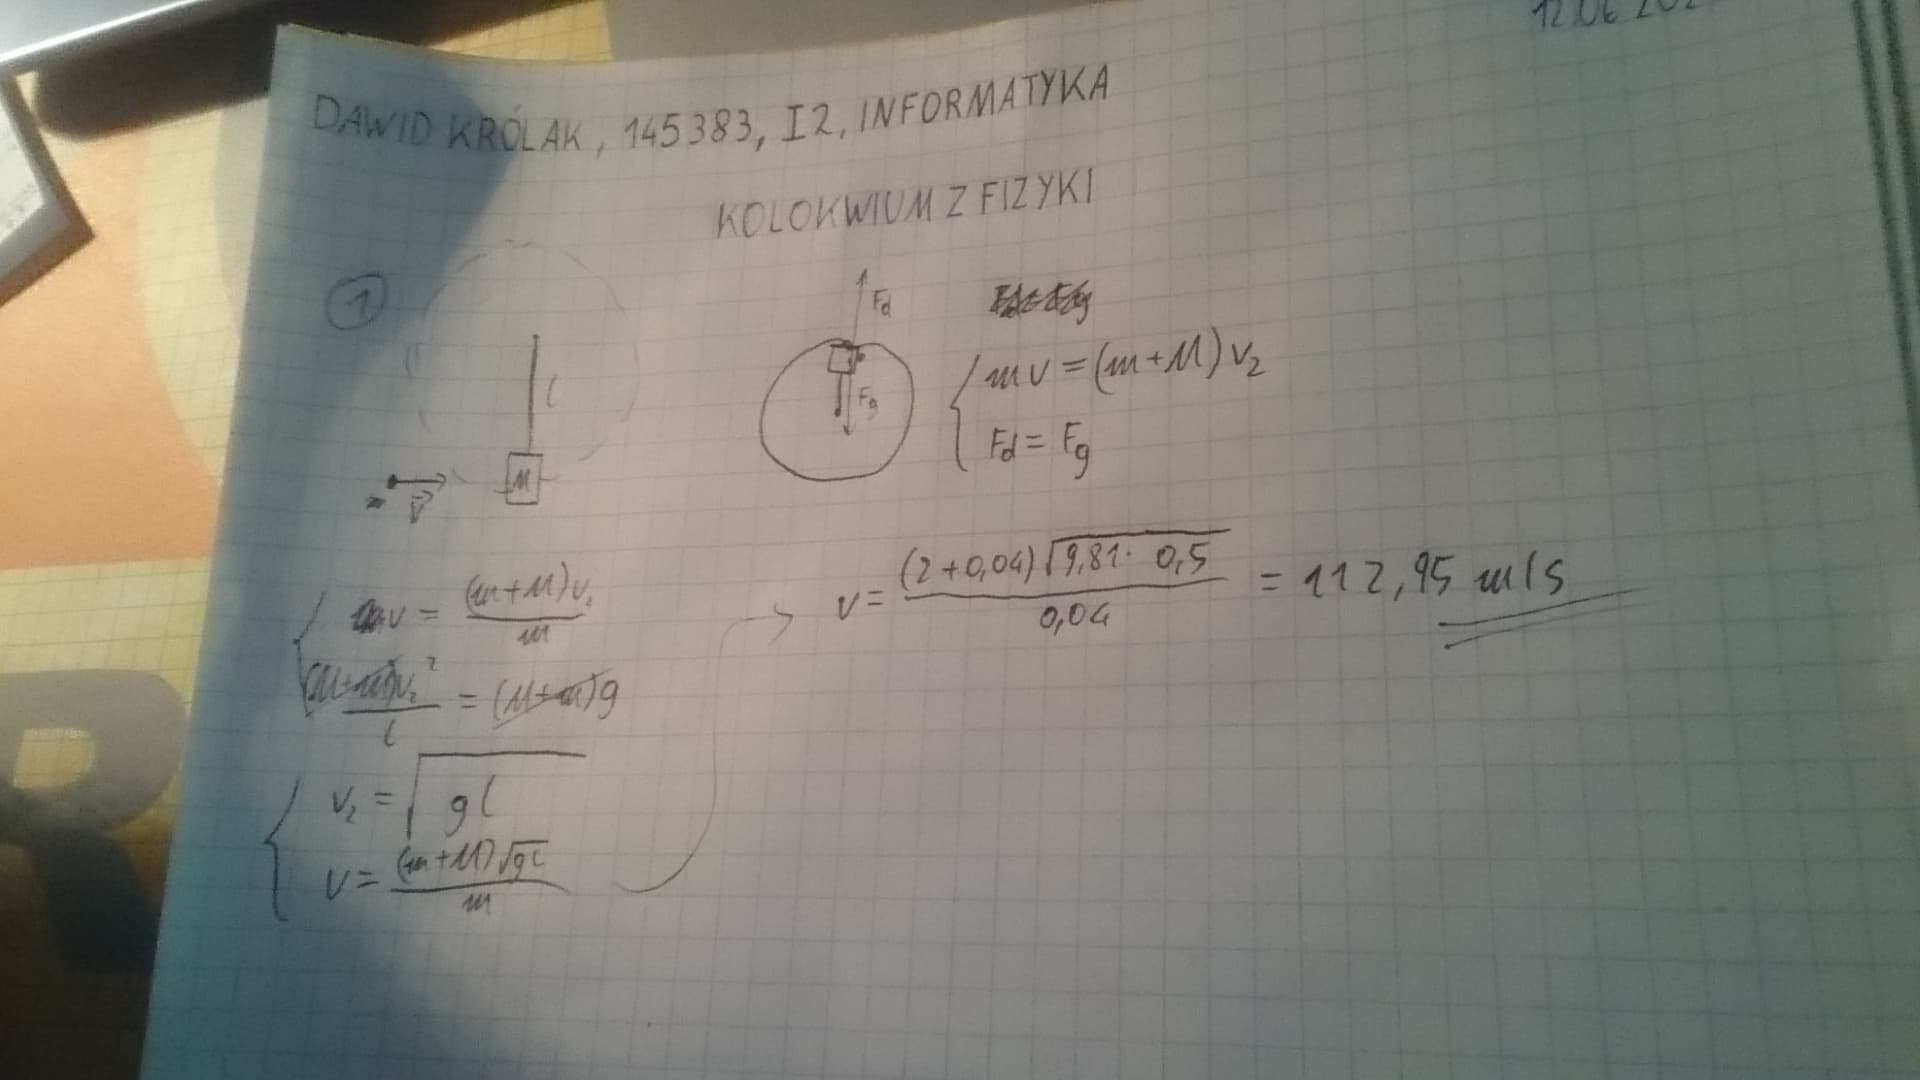 12.06.202
DAWID KRÓLAK, 145383, I2, INFORMATYKA
KOLOKWIUM Z FIZYKI
1
l
M
m
v
Fd
Fg
mv = (m+M) v₂
Fd = Fg
v = (m+M)v₂ / m
(M+m)v₂² / l = (M+m)g
v₂ = √gl
v = (m+M)√gl / m
v = (2+0,04)√9,81· 0,5 / 0,04 = 112,95 m/s